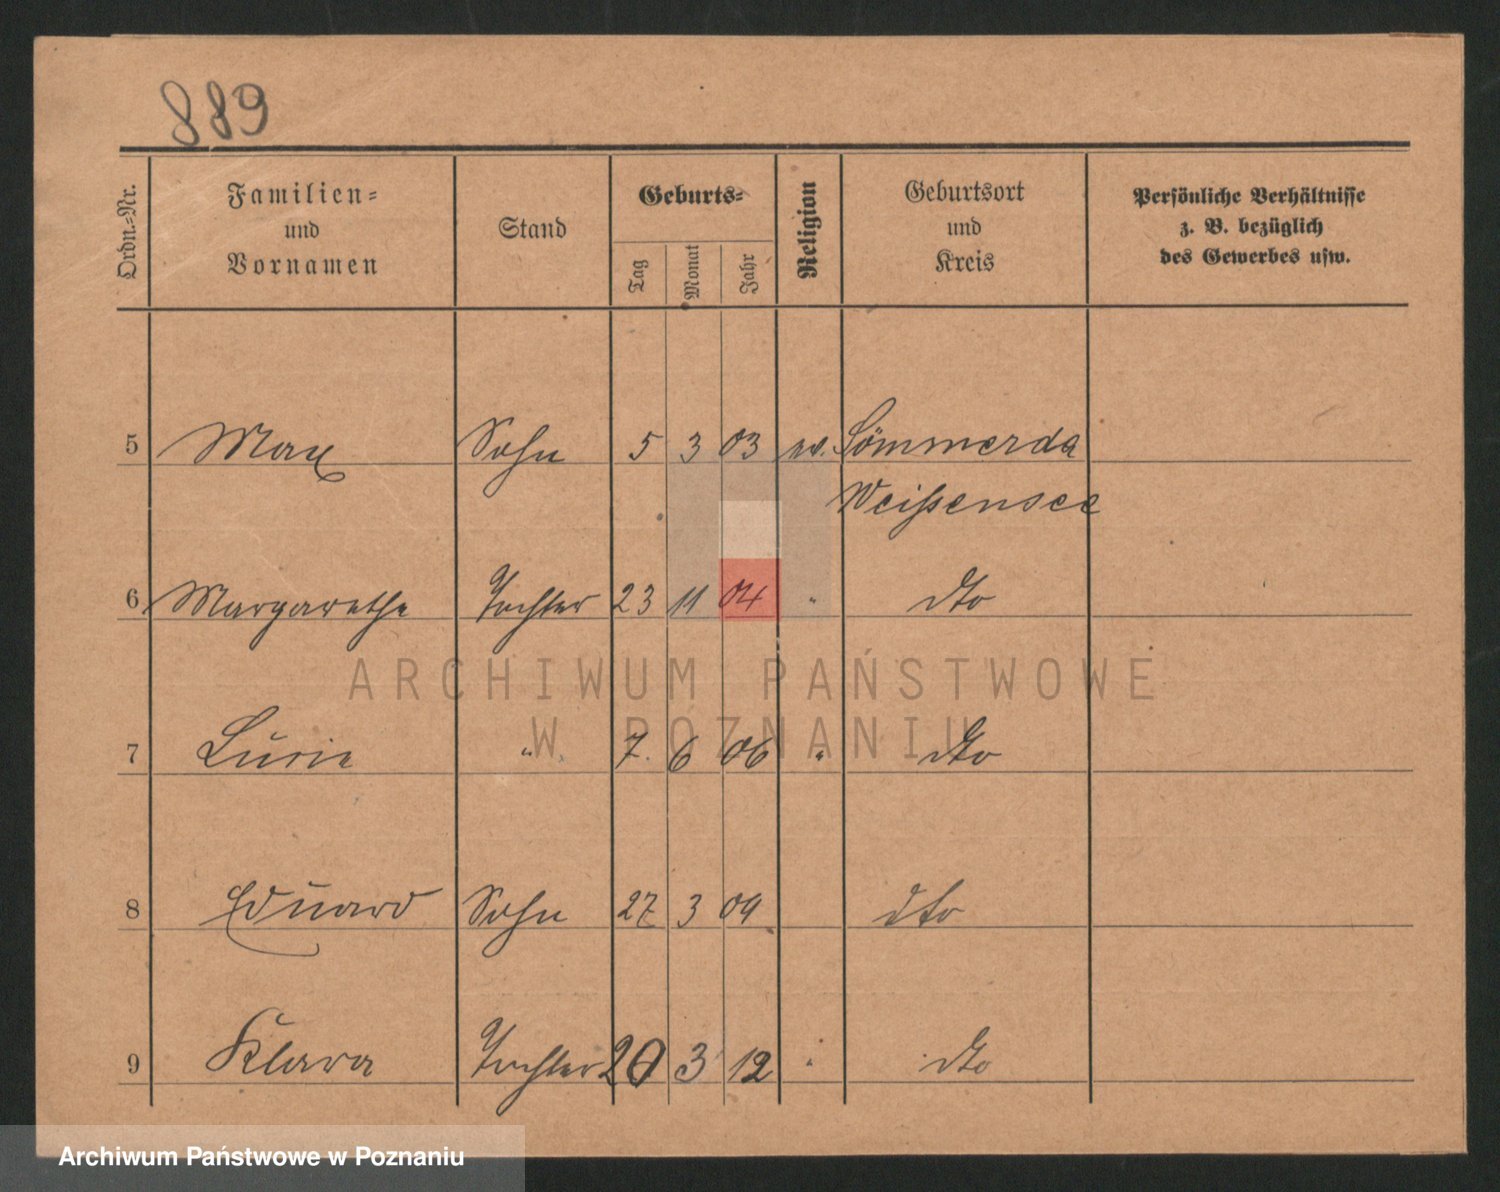 889
Ordn.-Nr.
Familien-
und
Vornamen
Stand
Geburts-
Tag
Monat
Jahr
Religion
Geburtsort
und
Kreis
Persönliche Verhältnisse
z. B. bezüglich
des Gewerbes usw.
5 Max Sohn 5 3 03 ev. Sömmerda
Weißensee
6 Margarethe Tochter 23 11 04 " dto
ARCHIWUM PAŃSTWOWE
W POZNANIU
7 Lucie " 7. 6 06 " dto
8 Eduard Sohn 27 3 09 dto
9 Klara Tochter 20 3 12 " dto
Archiwum Państwowe w Poznaniu